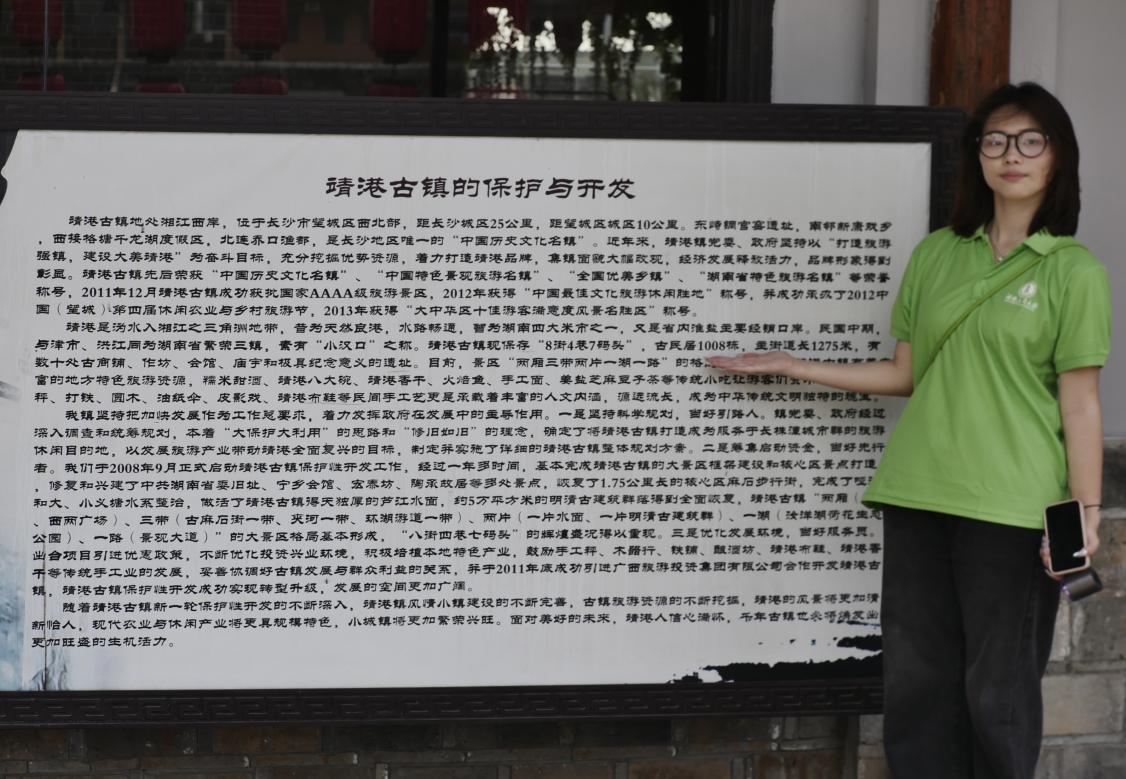 靖港古镇的保护与开发
靖港古镇地处湘江西岸，位于长沙市望城区西北部，距长沙城区25公里，距望城区城区10公里。东峙铜官窑遗址，南邻新康戏乡
，西接格塘千龙湖度假区，北连乔口渔都，是长沙地区唯一的“中国历史文化名镇”。近年来，靖港镇党委、政府坚持以“打造旅游
强镇，建设大美靖港”为奋斗目标，充分挖掘优势资源，着力打造靖港品牌，集镇面貌大幅改观，经济发展释放活力，品牌形象得到
彰显。靖港古镇先后荣获“中国历史文化名镇”、“中国特色景观旅游名镇”、“全国优美乡镇”、“湖南省特色旅游名镇”等荣誉
称号，2011年12月靖港古镇成功获批国家AAAA级旅游景区，2012年获得“中国最佳文化旅游休闲胜地”称号，并成功承办了2012中
国（望城）第四届休闲农业与乡村旅游节，2013年获得“大中华区十佳游客满意度风景名胜区”称号。
靖港是沩水入湘江之三角洲地带，昔为天然良港，水路畅通，曾为湖南四大米市之一，又是省内淮盐主要经销口岸。民国中期，
与津市、洪江同为湖南省繁荣三镇，素有“小汉口”之称。靖港古镇现保存“8街4巷7码头”，古民居1008栋，主街道长1275米，有
数十处古商铺、作坊、会馆、庙宇和极具纪念意义的遗址。目前，景区“两厢三带两片一湖一路”的格
富的地方特色旅游资源，糯米甜酒、靖港八大碗、靖港香干、火焙鱼、手工面、姜盐芝麻豆子茶等传统小吃让游客们
秤、打铁、圆木、油纸伞、皮影戏、靖港布鞋等民间手工艺更是承载着丰富的人文内涵，源远流长，成为中华传统文明独特的瑰宝。
我镇坚持把加快发展作为工作总要求，着力发挥政府在发展中的主导作用。一是坚持科学规划，当好引路人。镇党委、政府经过
深入调查和统筹规划，本着“大保护大利用”的思路和“修旧如旧”的理念，确定了将靖港古镇打造成为服务于长株潭城市群的旅游
休闲目的地，以发展旅游产业带动靖港全面复兴的目标，制定并实施了详细的靖港古镇整体规划方案。二是筹集启动资金，当好先行
者。我们于2008年9月正式启动靖港古镇保护性开发工作，经过一年多时间，基本完成靖港古镇的大景区框架建设和核心区景点打造
，修复和兴建了中共湖南省委旧址、宁乡会馆、宏泰坊、陶承故居等多处景点，恢复了1.75公里长的核心区麻石步行街，完成了
和大、小义塘水系整治，做活了靖港古镇得天独厚的芦江水面，约5万平方米的明清古建筑群落得到全面恢复，靖港古镇“两厢（
、西两广场）、三带（古麻石街一带、夹河一带、环湖游道一带）、两片（一片水面、一片明清古建筑群）、一湖（汝洋湖荷花生态
公园）、一路（景观大道）”的大景区格局基本形成，“八街四巷七码头”的辉煌盛况得以重现。三是优化发展环境，当好服务员。
出台项目引进优惠政策，不断优化投资兴业环境，积极培植本地特色产业，鼓励手工秤、木器行、铁铺、酿酒坊、靖港布鞋、靖港香
干等传统手工业的发展，妥善协调好古镇发展与群众利益的关系，并于2011年底成功引进广西旅游投资集团有限公司合作开发靖港古
镇，靖港古镇保护性开发成功实现转型升级，发展的空间更加广阔。
随着靖港古镇新一轮保护性开发的不断深入，靖港镇风情小镇建设的不断完善，古镇旅游资源的不断挖掘，靖港的风景将更加清
新怡人，现代农业与休闲产业将更具规模特色，小城镇将更加繁荣兴旺。面对美好的未来，靖港人信心满怀，千年古镇也必将焕发出
更加旺盛的生机活力。